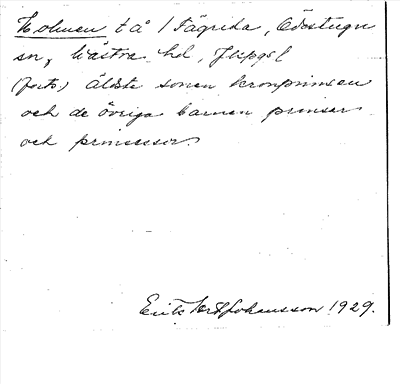 Holmen t å 1 Fägreda, Ödestugu
sn, Västra hd, Jkpgs l
(forts.) äldste sonen kronprinsen
och de övriga barnen prinsar
och prinsessor.
Erik Johansson 1929.